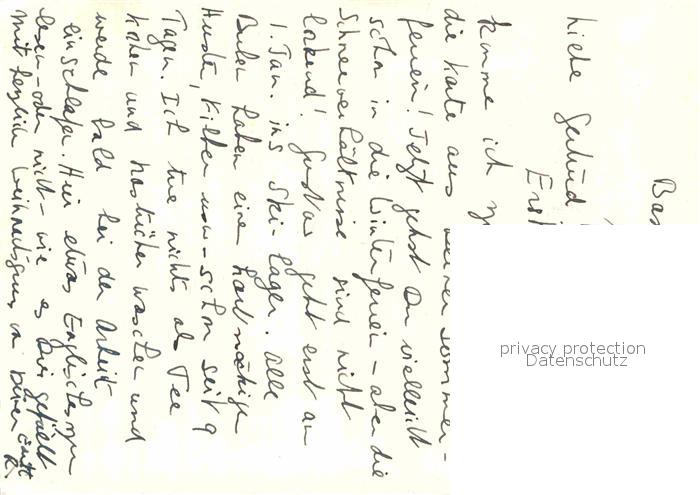 Bas
Liebe Gertrud
Erst
komme ich
die Karte aus deiner Sommer-
ferien! Jetzt gehst Du vielleicht
schon in die Winterferien – aber die
Schneeverhältnisse sind nicht
lockend! Gustav geht erst am
1. Jan. ins Skilager. Alle
Buben haben eine hartnäckigen
Husten, Kilten usw – schon seit 9
Tagen. Ich tue nichts als Tee
kochen und Nastücher waschen und
werde bald bei der Arbeit
einschlafen. Hier etwas Englisches zum
lesen – oder nicht – wie es Dir gefällt
Mit herzlich Weihnachtsgruss, von Deiner
privacy protection
Datenschutz